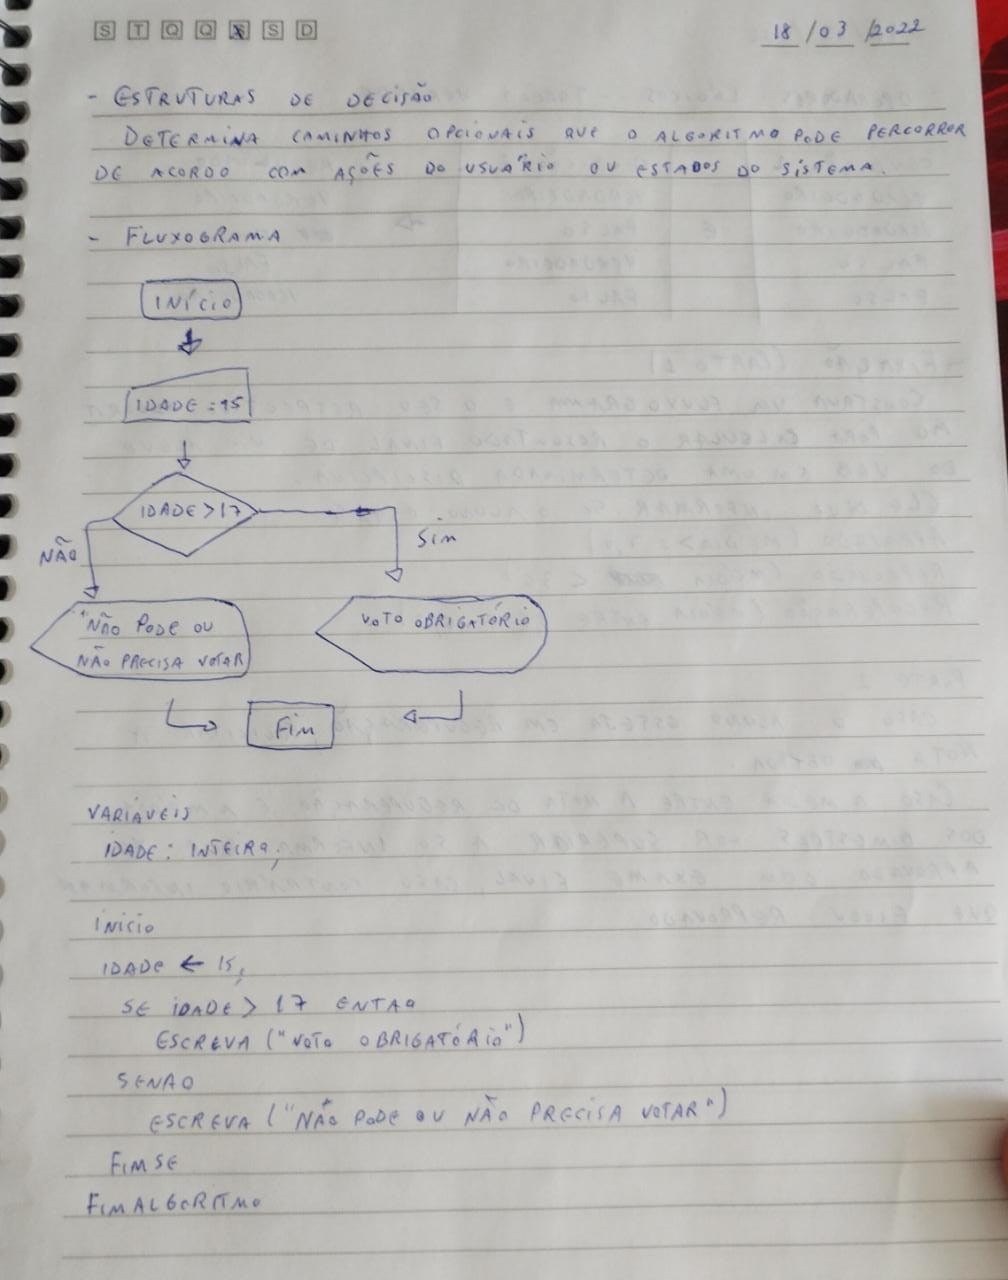 S T Q Q S S D
18 / 03 / 2022
- ESTRUTURAS DE DECISÃO
DETERMINA CAMINHOS OPCIONAIS QUE O ALGORITMO PODE PERCORROR
DE ACORDO COM AÇÕES DO USUÁRIO OU ESTADOS DO SISTEMA.
- FLUXOGRAMA
INÍCIO
IDADE = 15
IDADE > 17
NÃO
SIM
"NÃO PODE OU
NÃO PRECISA VOTAR
VOTO OBRIGATÓRIO
FIM
VARIÁVEIS
IDADE: INTEIRA;
INICIO
IDADE ← 15;
SE IDADE > 17 ENTAO
ESCREVA ("VOTO OBRIGATÓRIO")
SENAO
ESCREVA ("NÃO PODE OU NÃO PRECISA VOTAR")
FIMSE
FIMALGORITMO